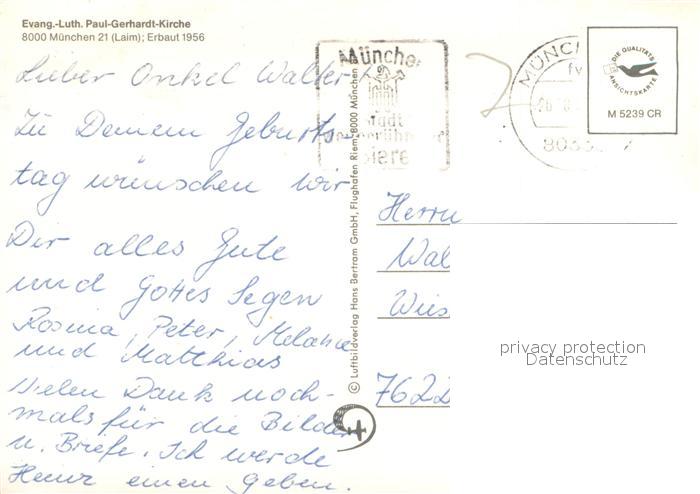 Evang.-Luth. Paul-Gerhardt-Kirche
8000 München 21 (Laim); Erbaut 1956
Lieber Onkel Walter
Zu Deinem Geburts-
tag wünschen wir
Dir alles Gute
und Gottes Segen
Rosina, Peter, Melanie
und Matthias
Vielen Dank noch-
mals für die Bilder
u. Briefe. Ich werde
Heinz einen geben.
© Luftbildverlag Hans Bertram GmbH, Flughafen Riem, 8000 München
München
Stadt
Biere
MÜNC
DIE QUALITÄTS
ANSICHTSKARTE
M 5239 CR
Herrn
Wal
Wies
7622
privacy protection
Datenschutz